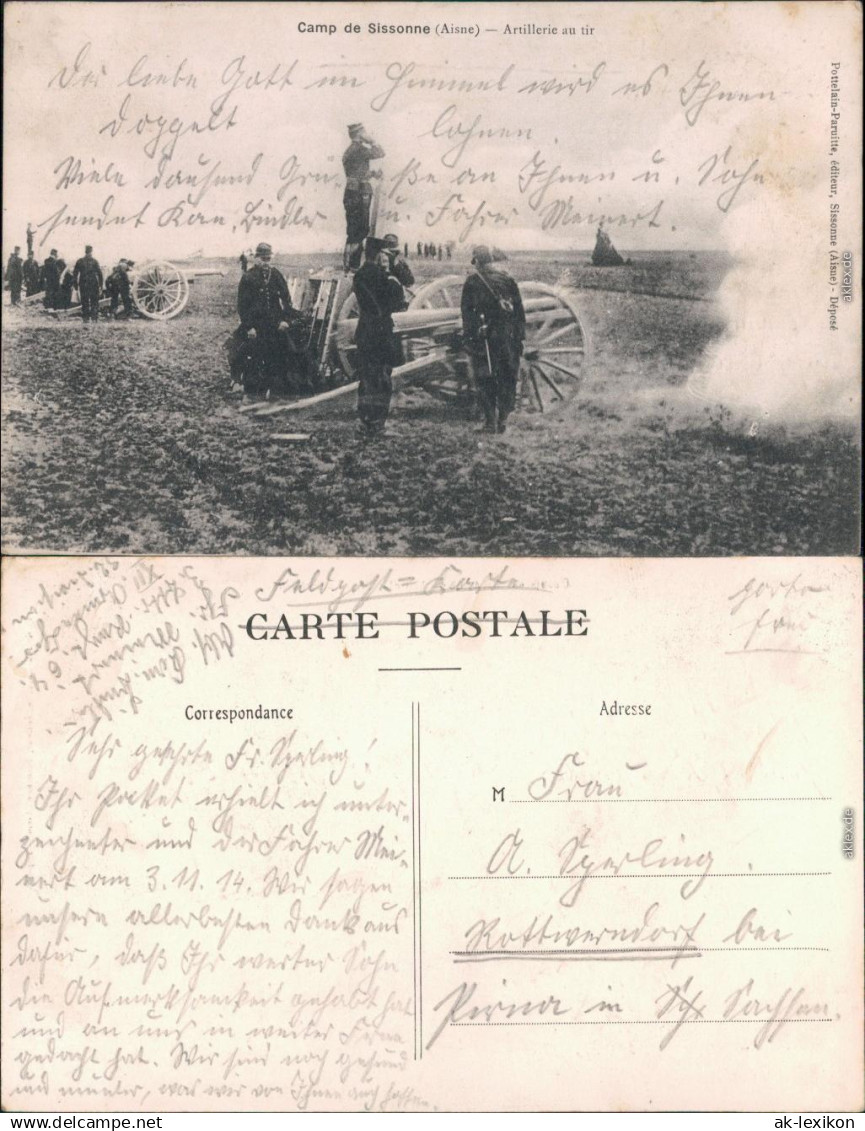 Camp de Sissonne (Aisne) — Artillerie au tir
Pottelain-Paruitte, éditeur, Sissonne (Aisne) - Déposé
Der liebe Gott im Himmel wird es Ihnen
doppelt lohnen.
Viele dausend Grüße an Ihnen u. Sohn
sendet Kan. Bindler u. Fahrer Meinert.
Feldpost = Karte.
porto
frei
CARTE POSTALE
Correspondance
Sehr geehrte Fr. Sperling!
Ihr Packet erhielt ich unter-
zeichneter und der Fahrer Mei-
nert am 3.11.14. Wir sagen
unsern allerbesten Dank aus
dafür, daß Ihr werter Sohn
die Aufmerksamkeit gehabt hat
und an uns in weiter Ferne
gedacht hat. Wir sind noch gesund
und munter, was wir von Ihnen auch hoffen.
Adresse
M Frau
A. Sperling.
Rottwerndorf bei
Pirna in Sachsen.
akpool.de
akpool.de
www.delcampe.net
ak-lexikon